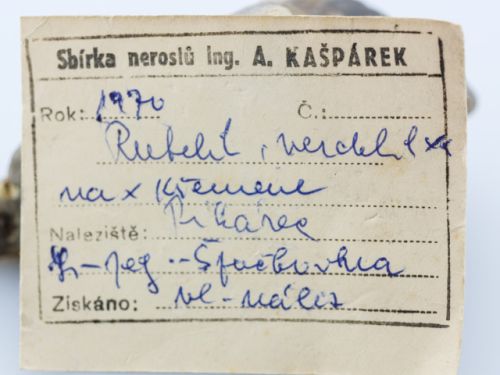 Sbírka nerostů Ing. A. KAŠPÁREK
Rok: 1970 Č.:
Rubelit, verdelit xx
na x křemene
Naleziště: Pikárec
Li-peg
Získáno: vl-nález